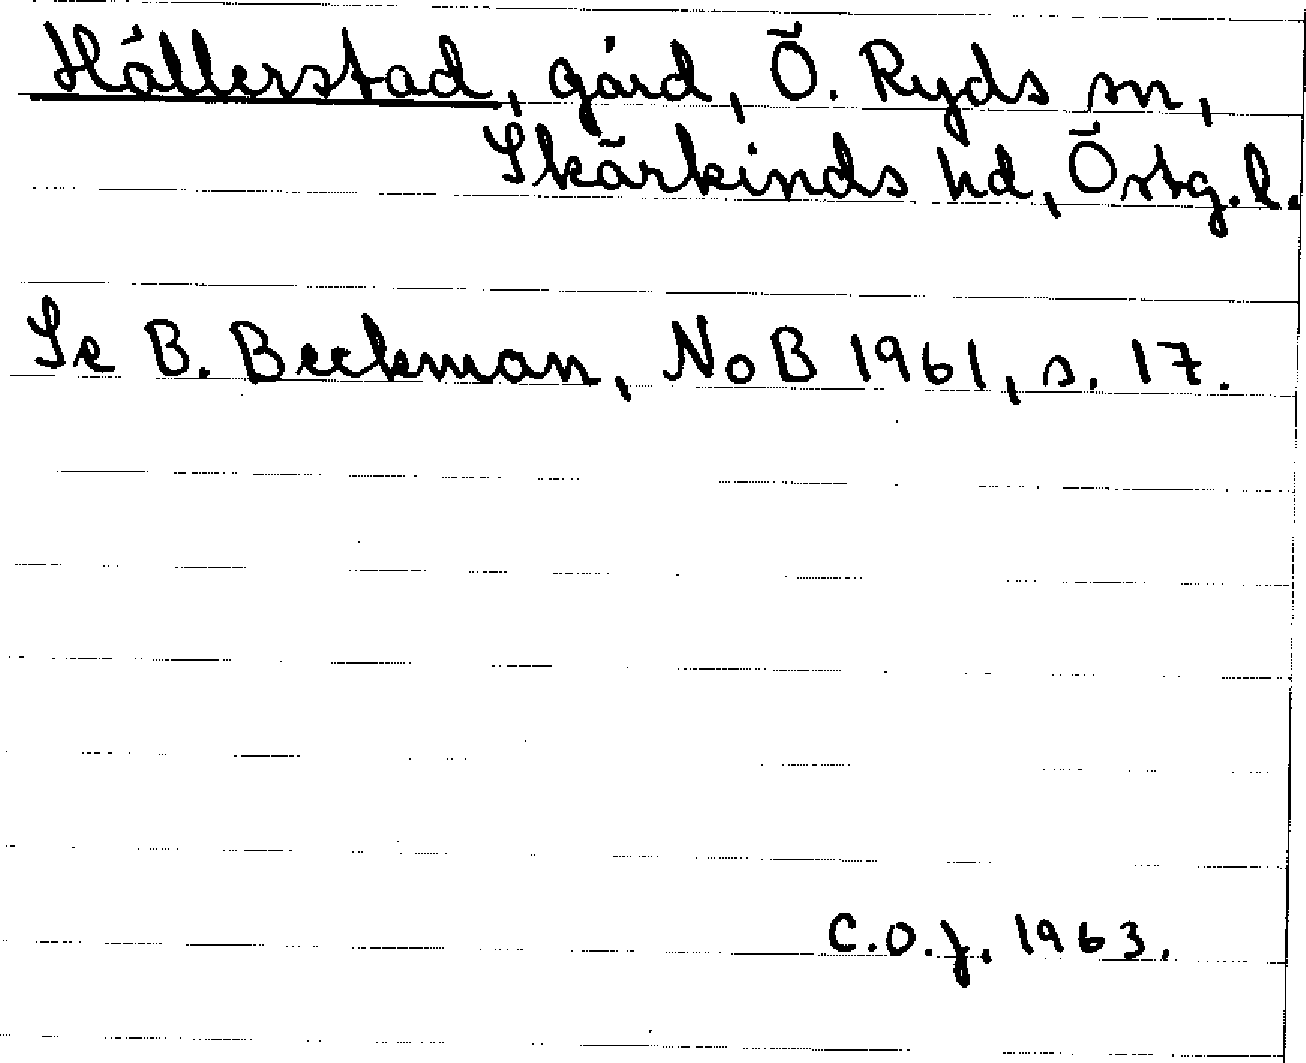 Hållerstad, gård, Ö. Ryds sn,
Skärkinds hd, Östg. l.
Se B. Beckman, NoB 1961, s. 17.
C.O.J. 1963.